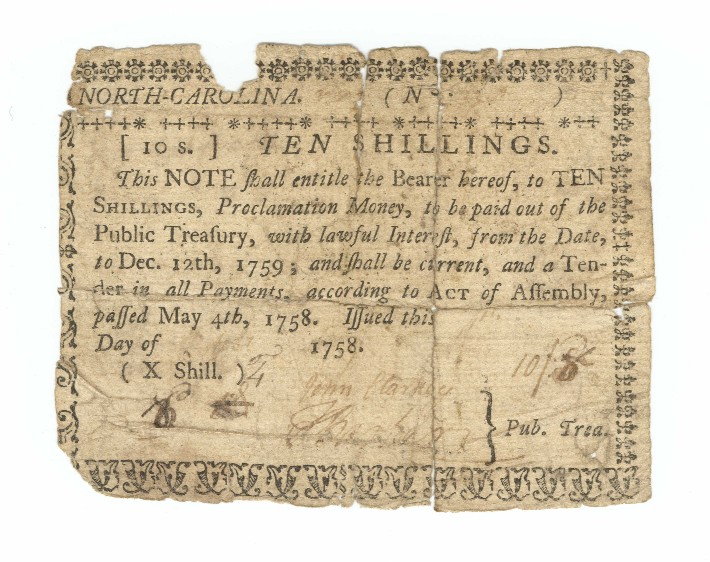 NORTH-CAROLINA. (N )
[ 10 s. ] TEN SHILLINGS.
This NOTE ſhall entitle the Bearer hereof, to TEN
SHILLINGS, Proclamation Money, to be paid out of the
Public Treaſury, with lawful Intereſt, from the Date,
to Dec. 12th, 1759; and ſhall be current, and a Ten-
der in all Payments, according to ACT of Aſſembly,
paſſed May 4th, 1758. Iſſued this
Day of 1758.
( X Shill. )
John Starkey
10/
} Pub. Trea.